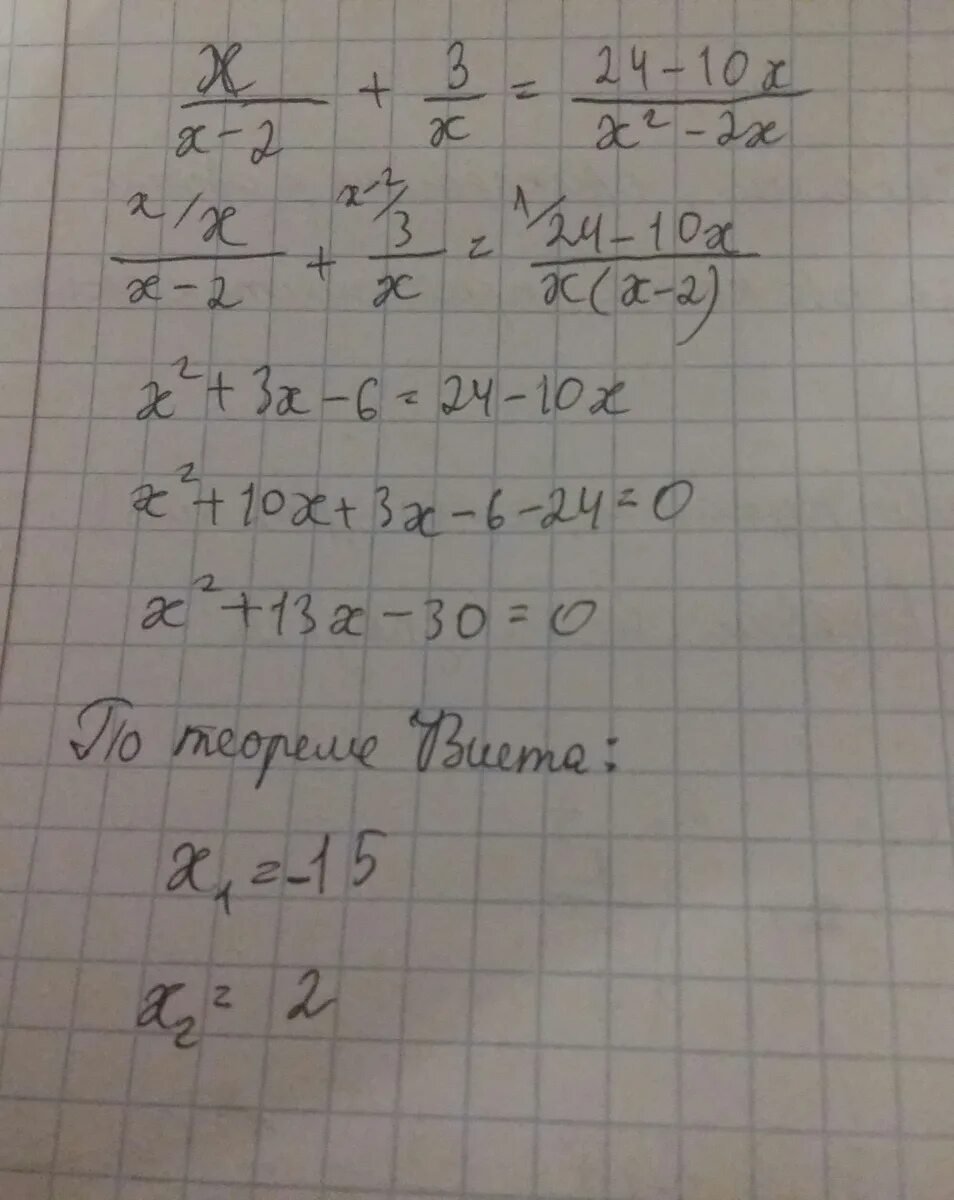 x/(x-2) + 3/x = (24-10x)/(x²-2x)
x/ x/(x-2) + x-2/ 3/x = 1/ (24-10x)/(x(x-2))
x² + 3x - 6 = 24 - 10x
x² + 10x + 3x - 6 - 24 = 0
x² + 13x - 30 = 0
По теореме Виета:
x₁ = -15
x₂ = 2